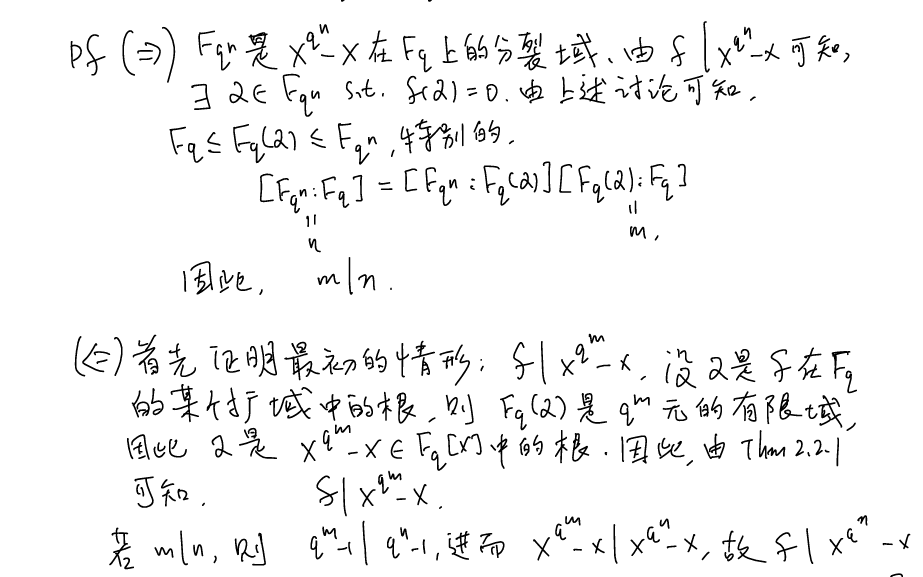 Pf (⇒) F_{q^n} 是 x^{q^n}-x 在 F_q 上的分裂域. 由 f | x^{q^n}-x 可知,
∃ α∈ F_{q^n} s.t. f(α)=0. 由上述讨论可知,
F_q ≤ F_q(α) ≤ F_{q^n}, 特别的,
[F_{q^n}:F_q] = [F_{q^n}:F_q(α)][F_q(α):F_q]
|| ||
n m,
因此, m|n.
(⇐) 首先证明最初的情形: f | x^{q^m}-x. 设 α 是 f 在 F_q
的某个扩域中的根, 则 F_q(α) 是 q^m 元的有限域,
因此 α 是 x^{q^m}-x ∈ F_q[x] 中的根. 因此, 由 Thm 2.2.1
可知. f | x^{q^m}-x.
若 m|n, 则 q^m-1 | q^n-1, 进而 x^{q^m}-x | x^{q^n}-x, 故 f | x^{q^n}-x